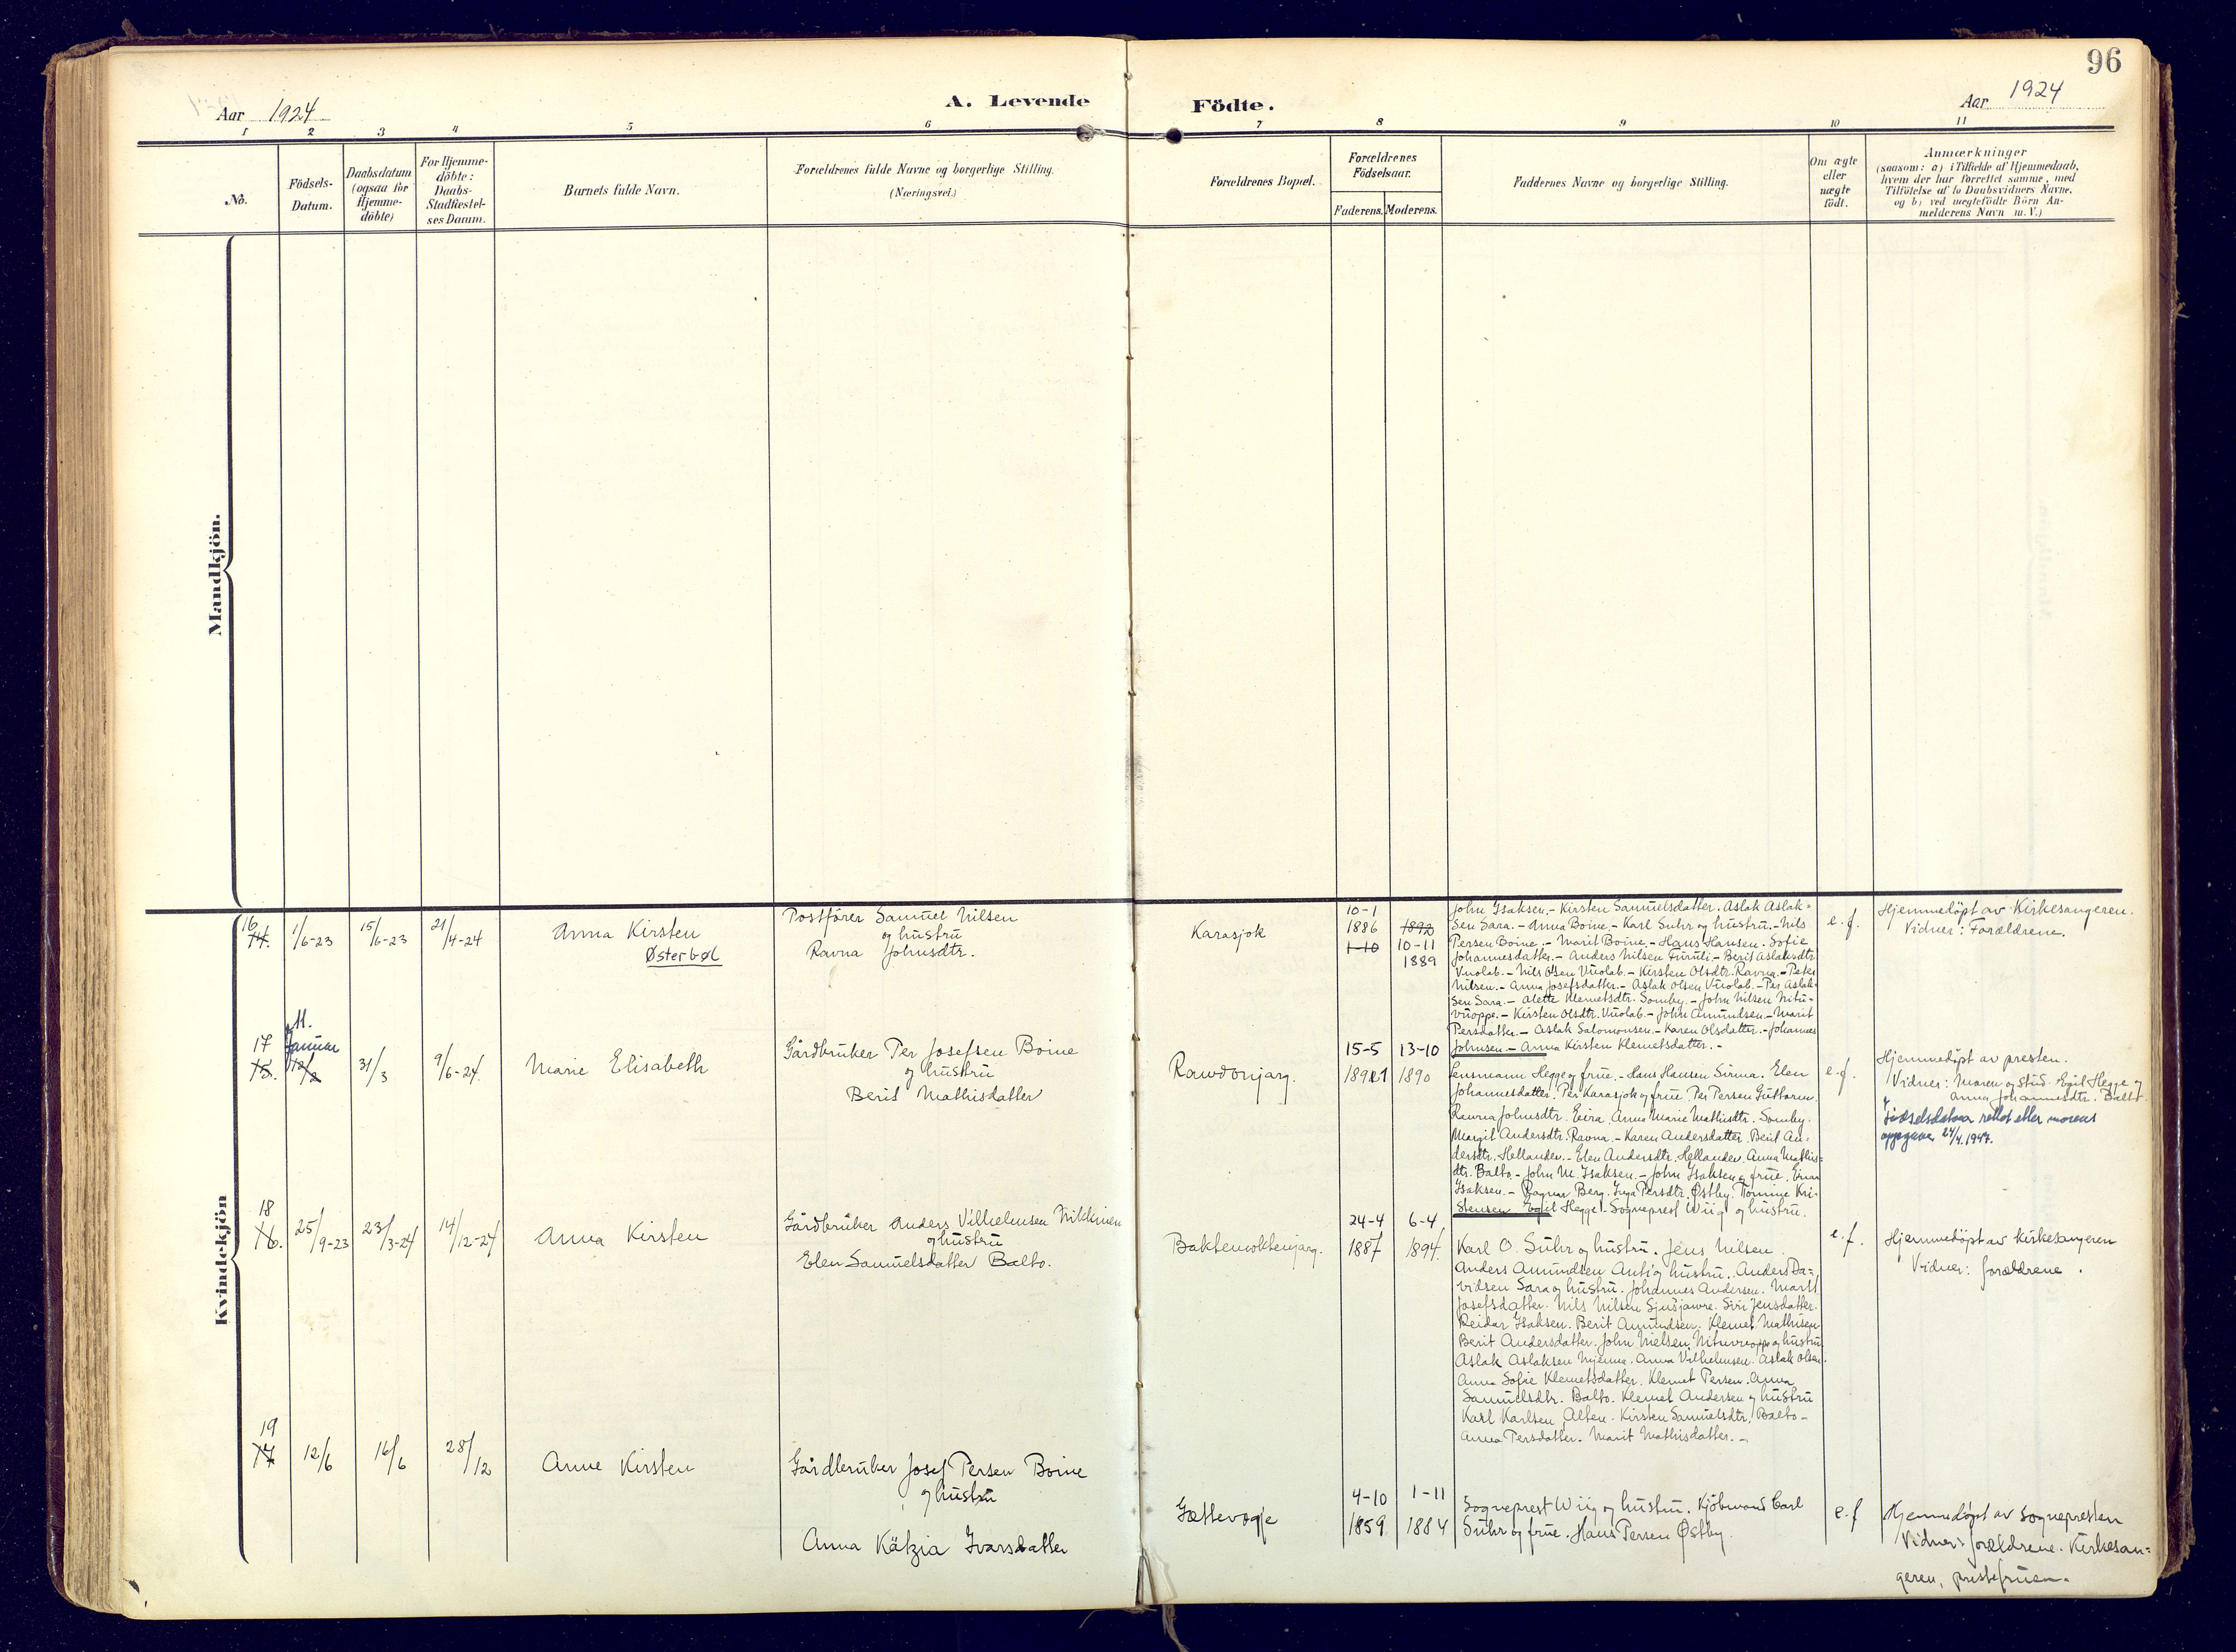 96
Aar 1924
A. Levende Födte.
Aar 1924
1 2 3 4 5 6 7 8 9 10 11
No.
Födsels-
Datum.
Daabsdatum
(ogsaa for
Hjemme-
döbte)
For Hjemme-
döbte:
Daabs-
Stadfæstel-
ses Datum.
Barnets fulde Navn.
Forældrenes fulde Navne og borgerlige Stilling.
(Næringsvei.)
Forældrenes Bopæl.
Forældrenes
Födselsaar.
Faderens. Moderens.
Faddernes Navne og borgerlige Stilling.
Om ægte
eller
uægte
födt.
Anmærkninger
(saasom: a) i Tilfælde af Hjemmedaab,
hvem der har forrettet samme, med
Tilföielse af to Daabsvidners Navne.
og b) ved uægtefödte Börn An-
melderens Navn m. V.)
Mandkjön.
Kvindekjön
16
14.
1/6-23
15/6-23
21/4-24
Anna Kirsten
Østerbøl
Postfører Samuel Nilsen
og hustru
Ravna Johnsdtr.
Karasjok
10-1
1886
1-10
1892
10-11
1889
John Isaksen. - Kirsten Samuelsdatter. Aslak Aslak-
sen Sara. - Anna Boine. - Karl Suhr og hustru. - Nils
Persen Boine. - Marit Boine. - Hans Hansen. Sofie
Johannesdatter. - Anders Nilsen Furuli - Berit Aslaksdtr
Vuolab. - Nils Olsen Vuolab. - Kirsten Olsdtr. Ravna. - Peter
Nilsen. - Anna Josefsdatter. - Aslak Olsen Vuolab. - Per Aslak-
sen Sara. - Alette Klemetsdtr. Somby. - John Nilsen Nitu-
vuoppe. - Kirsten Olsdtr. Vuolab. - John Amundsen. - Marit
Persdatter. - Aslak Salomonsen. - Karen Olsdatter. - Johannes
Johnsen. - Anna Kirsten Klemetsdatter. -
e.f.
Hjemmedøpt av Kirkesangeren.
Vidner: Forældrene.
17
15.
11.
Januar
12/2
31/3
9/6-24.
Marie Elisabeth
Gårdbruker Per Josefsen Boine
og hustru
Berit Mathisdatter
Rawdonjarg.
15-5
1891
13-10
1890
Lensmann Hegge og frue. - Hans Hansen Sirma. Elen
Johannesdatter. Per Karasjok og frue. Per Persen Guttorm.
Ravna Johnsdtr. Eira. Anna Marie Mathisdtr. Somby.
Margit Andersdtr. Ravna. - Karen Andersdatter. Berit An-
dersdtr. Hellander. - Elen Andersdtr. Hellander. Anna Mathis-
dtr. Balto. - John M. Isaksen. - John Isaksen og frue.
Isaksen. - Ragnar Berg. Inga Persdtr. Østby. Tomine Kri-
stensen Egil Hegge. Sogneprest Wiig og hustru.
e.f.
Hjemmedøpt av presten.
Vidner: Moren og stud. Egil Hegge og
Anna Johannesdtr. Balto.
Fødselsdatoen rettet etter morens
oppgave 24/4.1947.
18
16.
25/9-23
23/3-24
14/12-24
Anna Kirsten
Gårdbruker Anders Vilhelmsen Nikkinen
og hustru
Elen Samuelsdatter Balto.
Baktenoltenjarg.
24-4
1887
6-4
1894.
Karl O. Suhr og hustru. Jens Nilsen.
Anders Amundsen Anti og hustru. Anders Da-
vidsen Sara og hustru. Johannes Andersen. Marit
Josefsdatter. Nils Nilsen Sjusjavre. Siri Jensdatter.
Reidar Isaksen. Berit Amundsen. Klemet Mathisen
Berit Andersdatter. John Nielsen Nituvuoppe og hustru
Aslak Aslaksen Njenna. Anna Vilhelmsen. Aslak Olsen.
Anna Sofie Klemetsdatter. Klemet Persen. Anna
Samuelsdtr. Balto. Klemet Andersen og hustru
Karl Karlsen Alten. Kirsten Samuelsdtr. Balto -
Anna Persdatter. Marit Mathisdatter. -
e.f.
Hjemmedøpt av Kirkesangeren
Vidner: forældrene.
19
17
12/6
16/6
28/12
Anne Kirsten
Gårdbruker Josef Persen Boine
og hustru
Anna Kätzia Ivarsdatter
Gættevogje
4-10
1859
1-11
1884
Sogneprest Wiig og hustru. Kjøbmand Carl
Suhr og frue. Hans Persen Østby.
e.f
Hjemmedøpt av sognepresten
Vidner: forældrene. Kirkesan-
geren, prestefruen.